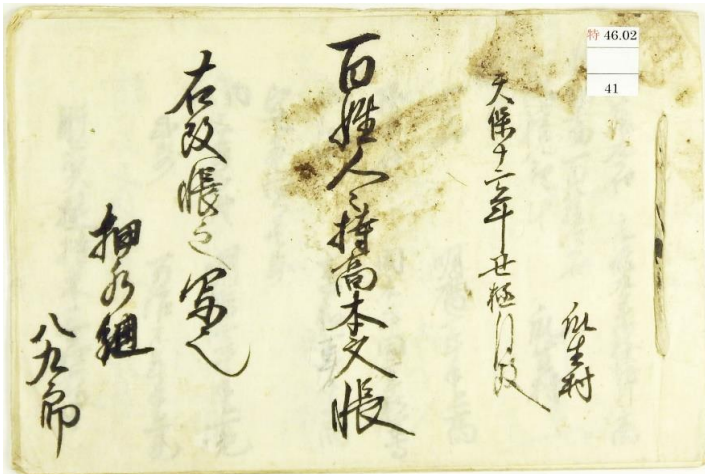 特 46.02
41
天保十二年丑極月改
瓜生村
百姓人々持高本文帳
右改帳之写也
押水組
八九郎